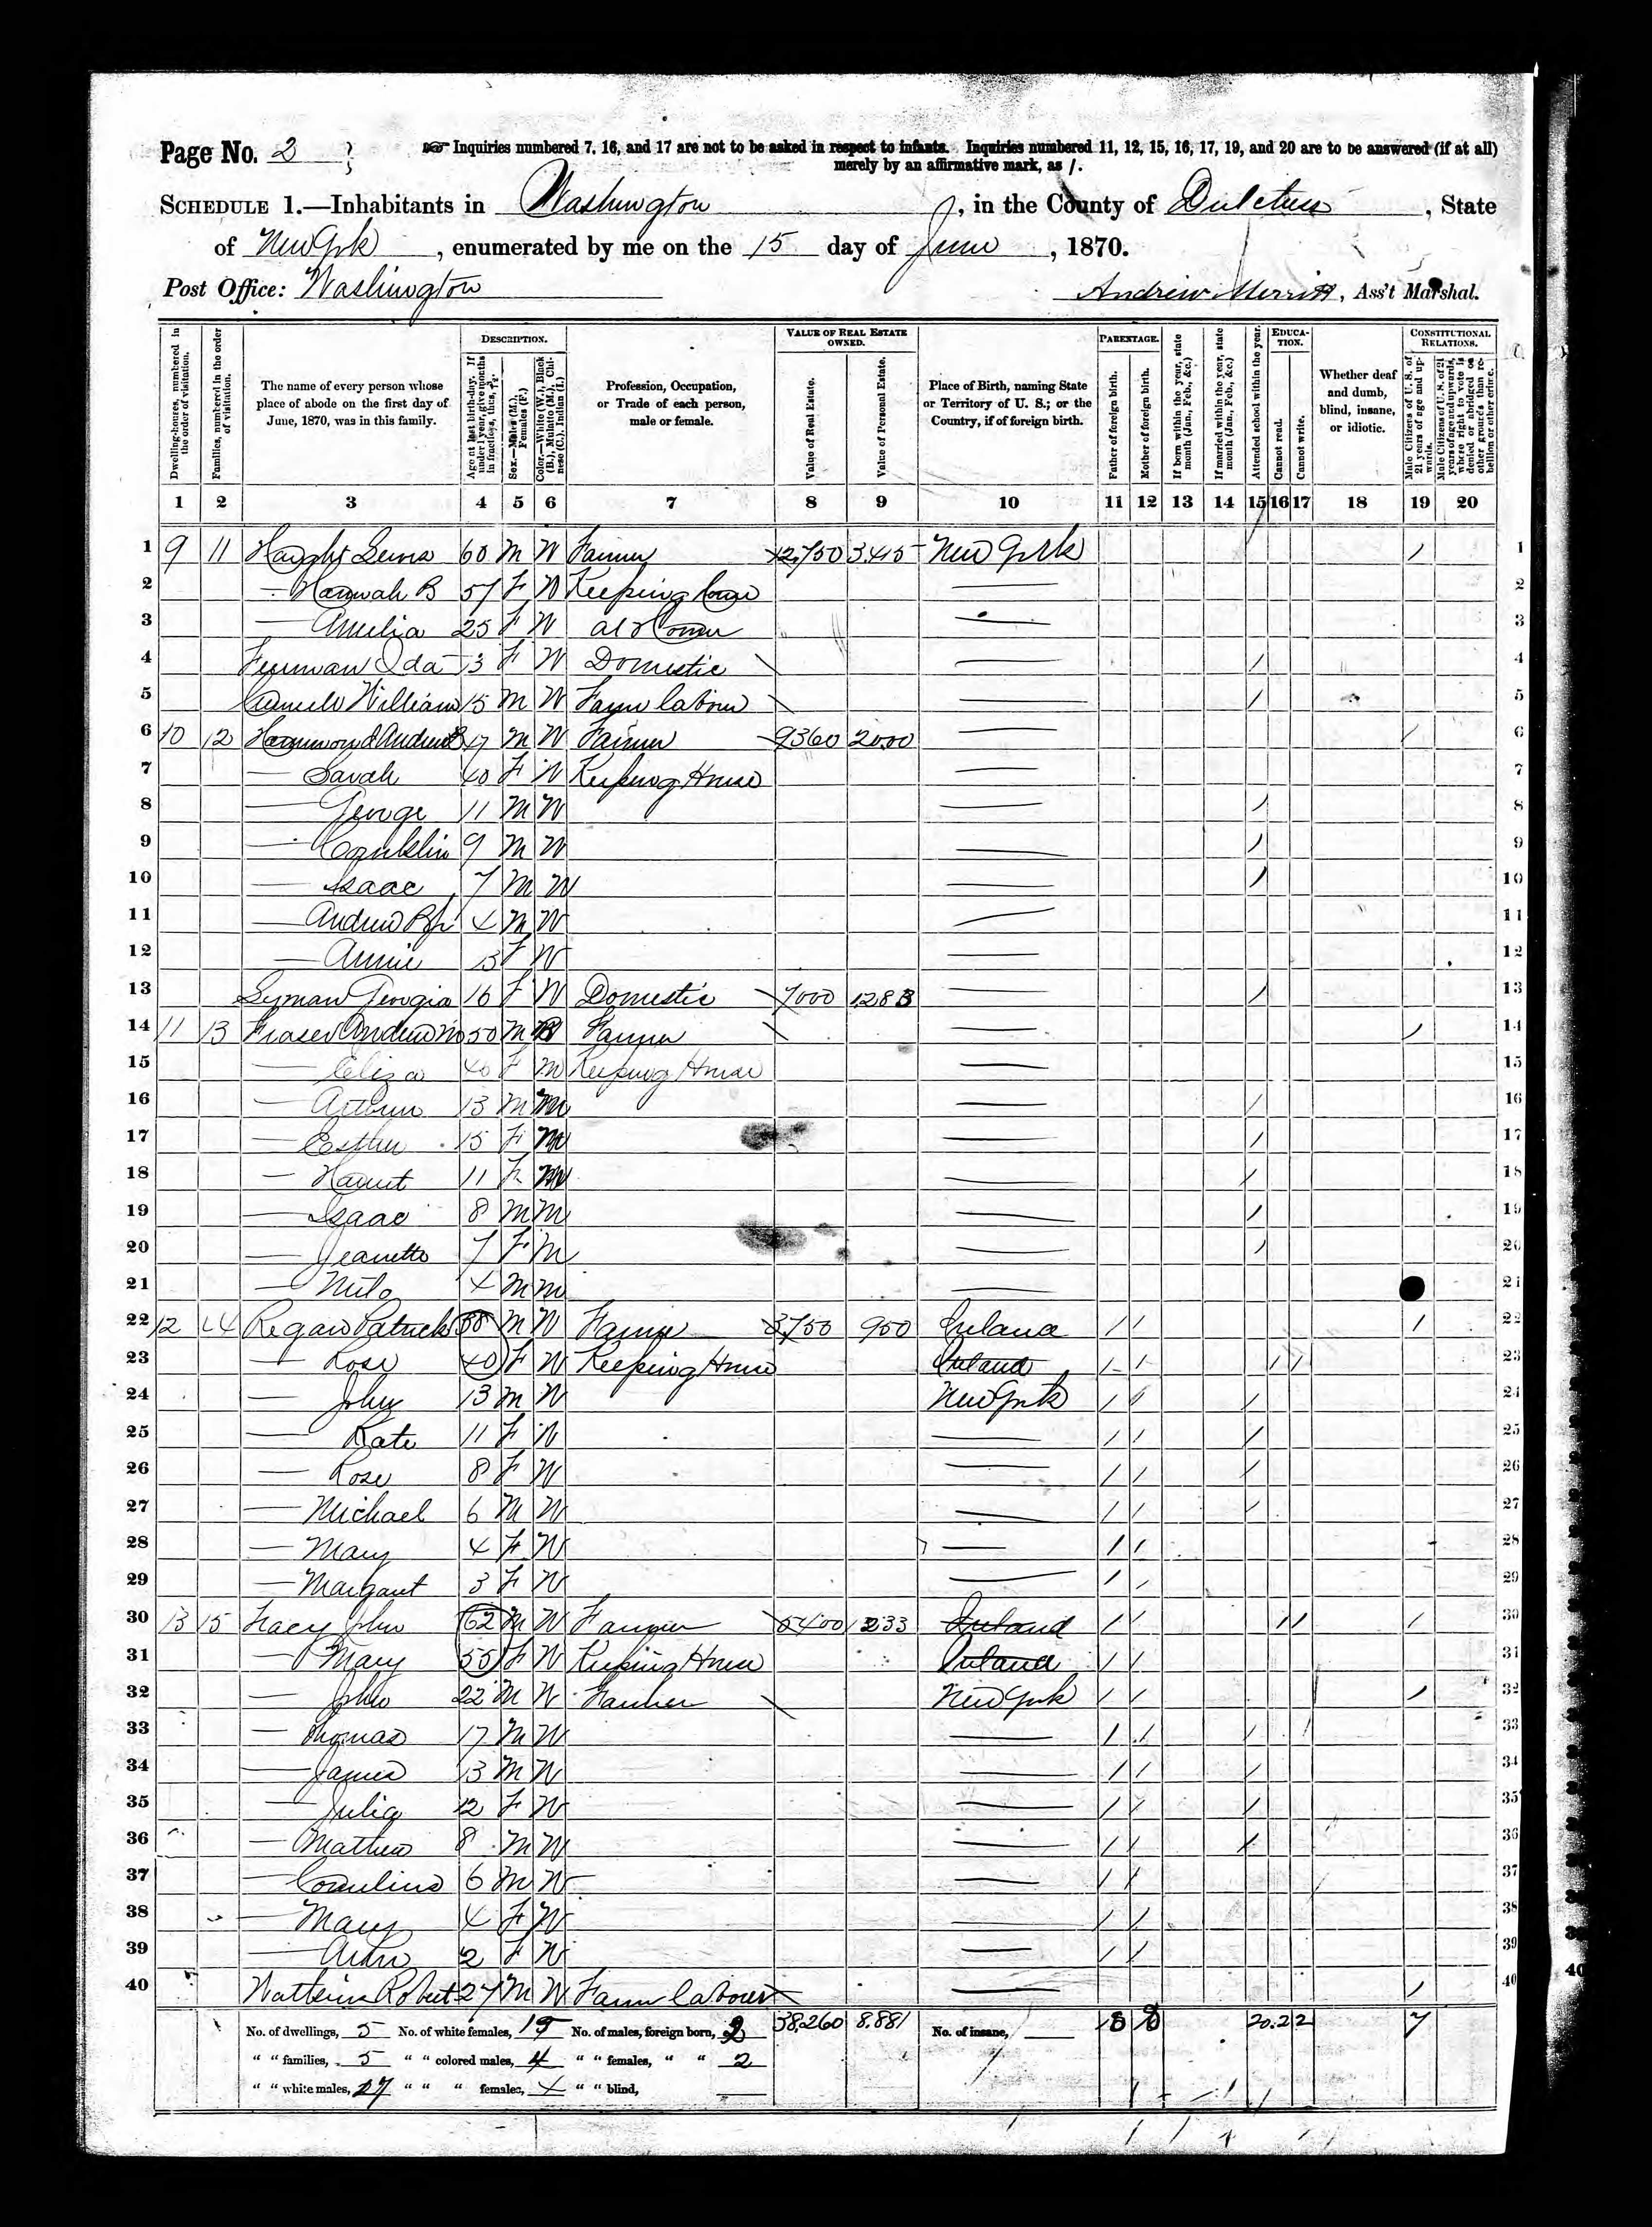 Page No. 2
Inquiries numbered 7, 16, and 17 are not to be asked in respect to infants. Inquiries numbered 11, 12, 15, 16, 17, 19, and 20 are to be answered (if at all)
merely by an affirmative mark, as /.
SCHEDULE 1.—Inhabitants in Washington, in the County of Dutchess, State
of New York, enumerated by me on the 15 day of June, 1870.
Post Office: Washington
Andrew Merritt, Ass't Marshal.
Dwelling-houses, numbered in the order of visitation.
Families, numbered in the order of visitation.
The name of every person whose place of abode on the first day of June, 1870, was in this family.
DESCRIPTION.
Age at last birth-day. If under 1 year, give months in fractions, thus, 3/12.
Sex.—Males (M.), Females (F.)
Color.—White (W.), Black (B.), Mulatto (M.), Chinese (C.), Indian (I.)
Profession, Occupation, or Trade of each person, male or female.
VALUE OF REAL ESTATE OWNED.
Value of Real Estate.
Value of Personal Estate.
Place of Birth, naming State or Territory of U. S.; or the Country, if of foreign birth.
PARENTAGE.
Father of foreign birth.
Mother of foreign birth.
If born within the year, state month (Jan., Feb., &c.)
If married within the year, state month (Jan., Feb., &c.)
Attended school within the year.
EDUCATION.
Cannot read.
Cannot write.
Whether deaf and dumb, blind, insane, or idiotic.
CONSTITUTIONAL RELATIONS.
Male Citizens of U. S. of 21 years of age and upwards.
Male Citizens of U. S. of 21 years of age and upwards, whose right to vote is denied or abridged on other grounds than rebellion or other crime.
1 2 3 4 5 6 7 8 9 10 11 12 13 14 15 16 17 18 19 20
1 9 11 Haight Lewis 60 M W Farmer 12,750 3415 New York / 1
2 — Hannah B 57 F W Keeping House — 2
3 — Amelia 25 F W at Home — 3
4 Ida 13 F W Domestic — / 4
5 William 15 M W Farm labourer — / 5
6 10 12 Hammond Andrew B 47 M W Farmer 9360 2000 — / 6
7 — Sarah 40 F W Keeping House — 7
8 — George 11 M W — / 8
9 — Conklin 9 M W — / 9
10 — Isaac 7 M W — / 10
11 — Andrew B Jr 4 M W — 11
12 — Annie F W — 12
13 Lyman Georgia 16 F W Domestic 7000 1283 — / 13
14 11 13 Fraser Andrew 50 M Farmer — / 14
15 — Eliza 40 F M Keeping House — 15
16 — Arthur 13 M M — / 16
17 — Esther 15 F M — / 17
18 — Harriet 11 F M — / 18
19 — Isaac 8 M M — / 19
20 — Jeanette 7 F M — / 20
21 — Milo 4 M M — 21
22 12 14 Regan Patrick M W Farmer 3750 950 Ireland / / / 22
23 — Rose 40 F W Keeping House Ireland / / / / 23
24 — John 13 M W New York / / / 24
25 — Kate 11 F W — / / / 25
26 — Rose 8 F W — / / / 26
27 — Michael 6 M W — / / / 27
28 — Mary 4 F W — / / 28
29 — Margaret 3 F W — / / 29
30 13 15 Tracy John 62 M W Farmer 5400 1233 Ireland / / / / / 30
31 — Mary 55 F W Keeping House Ireland / / 31
32 — John 22 M W Farmer New York / / / 32
33 — Thomas 17 M W — / / / 33
34 — James 13 M W — / / / 34
35 — Julia 12 F W — / / / 35
36 — Mathew 8 M W — / / / 36
37 — Cornelius 6 M W — / / 37
38 — Mary 4 F W — / / 38
39 — Ann 2 F W — / / 39
40 Watkins Robert 27 M W Farm labourer — / 40
No. of dwellings, 5 No. of white females, 15 No. of males, foreign born, 2 38,260 8.881 No. of insane, 18 18 20. 2 2 7
" " families, 5 " " colored males, 4 " " females, " " 2
" " white males, 17 " " " females, 4 " " blind,